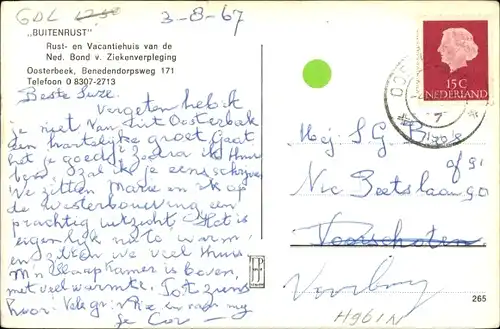 GDL 12,50 3-8-67
„BUITENRUST”
Rust- en Vacantiehuis van de
Ned. Bond v. Ziekenverpleging
Oosterbeek, Benedendorpsweg 171
Telefoon O 8307-2713
Beste Suze.
Vergeten heb ik
je niet Van uit Oosterbeek
een hartelijke groet Gaat
het je goed? Zoodra ik thuis
ben zal ik je eens schrijven
We zitten Marie en ik op
de Westerbouwing een
prachtig uitzicht. Het is
eigenlijk na te warm,
en zitten we veel thuis
M'n slaapkamer is boven,
met veel warmte. Tot ziens
hoor. Vele gr. v. Rie en van mij
je Cor
15C
NEDERLAND
Mej S G
Nic Beetslaan 90
Voorschoten
Voorburg
265
H961N